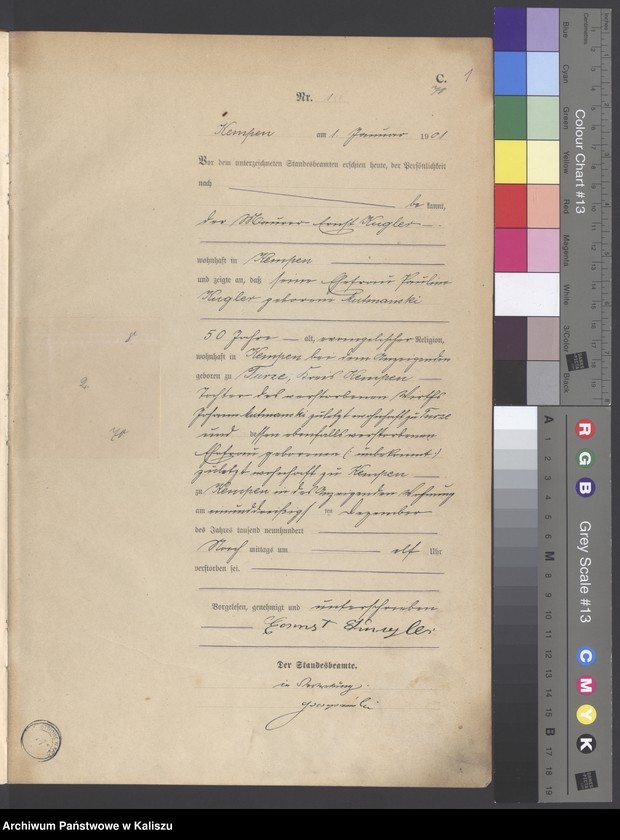 C.
1
70
Nr. 1
Kempen am 1 Januar 1901
Vor dem unterzeichneten Standesbeamten erschien heute, der Persönlichkeit
nach
be kannt,
der Maurer Ernst Kugler
wohnhaft in Kempen
und zeigte an, daß seine Ehefrau Pauline
Kugler geborene
50 Jahre alt, evangelischer Religion,
wohnhaft in Kempen bei dem Anzeigenden
geboren zu Turze, Kreis Kempen
Tochter des verstorbenen Wirths
Johann zuletzt wohnhaft zu Turze
und dessen ebenfalls verstorbenen
Ehefrau geborenen (unbekannt)
zuletzt wohnhaft zu Kempen
zu Kempen in des Anzeigenden Wohnung
am einunddreißigsten Dezember
des Jahres tausend neunhundert
Nach mittags um elf Uhr
verstorben sei.
Vorgelesen, genehmigt und unterschrieben
Ernst Kugler
Der Standesbeamte.
in Vertretung.
2
70
Colour Chart #13
Blue
Cyan
Green
Yellow
Red
Magenta
White
3/Color
Black
Grey Scale #13
R
G
B
C
M
Y
K
A
1
2
3
4
5
6
M
8
9
10
11
12
13
14
15
B
17
18
19
Archiwum Państwowe w Kaliszu